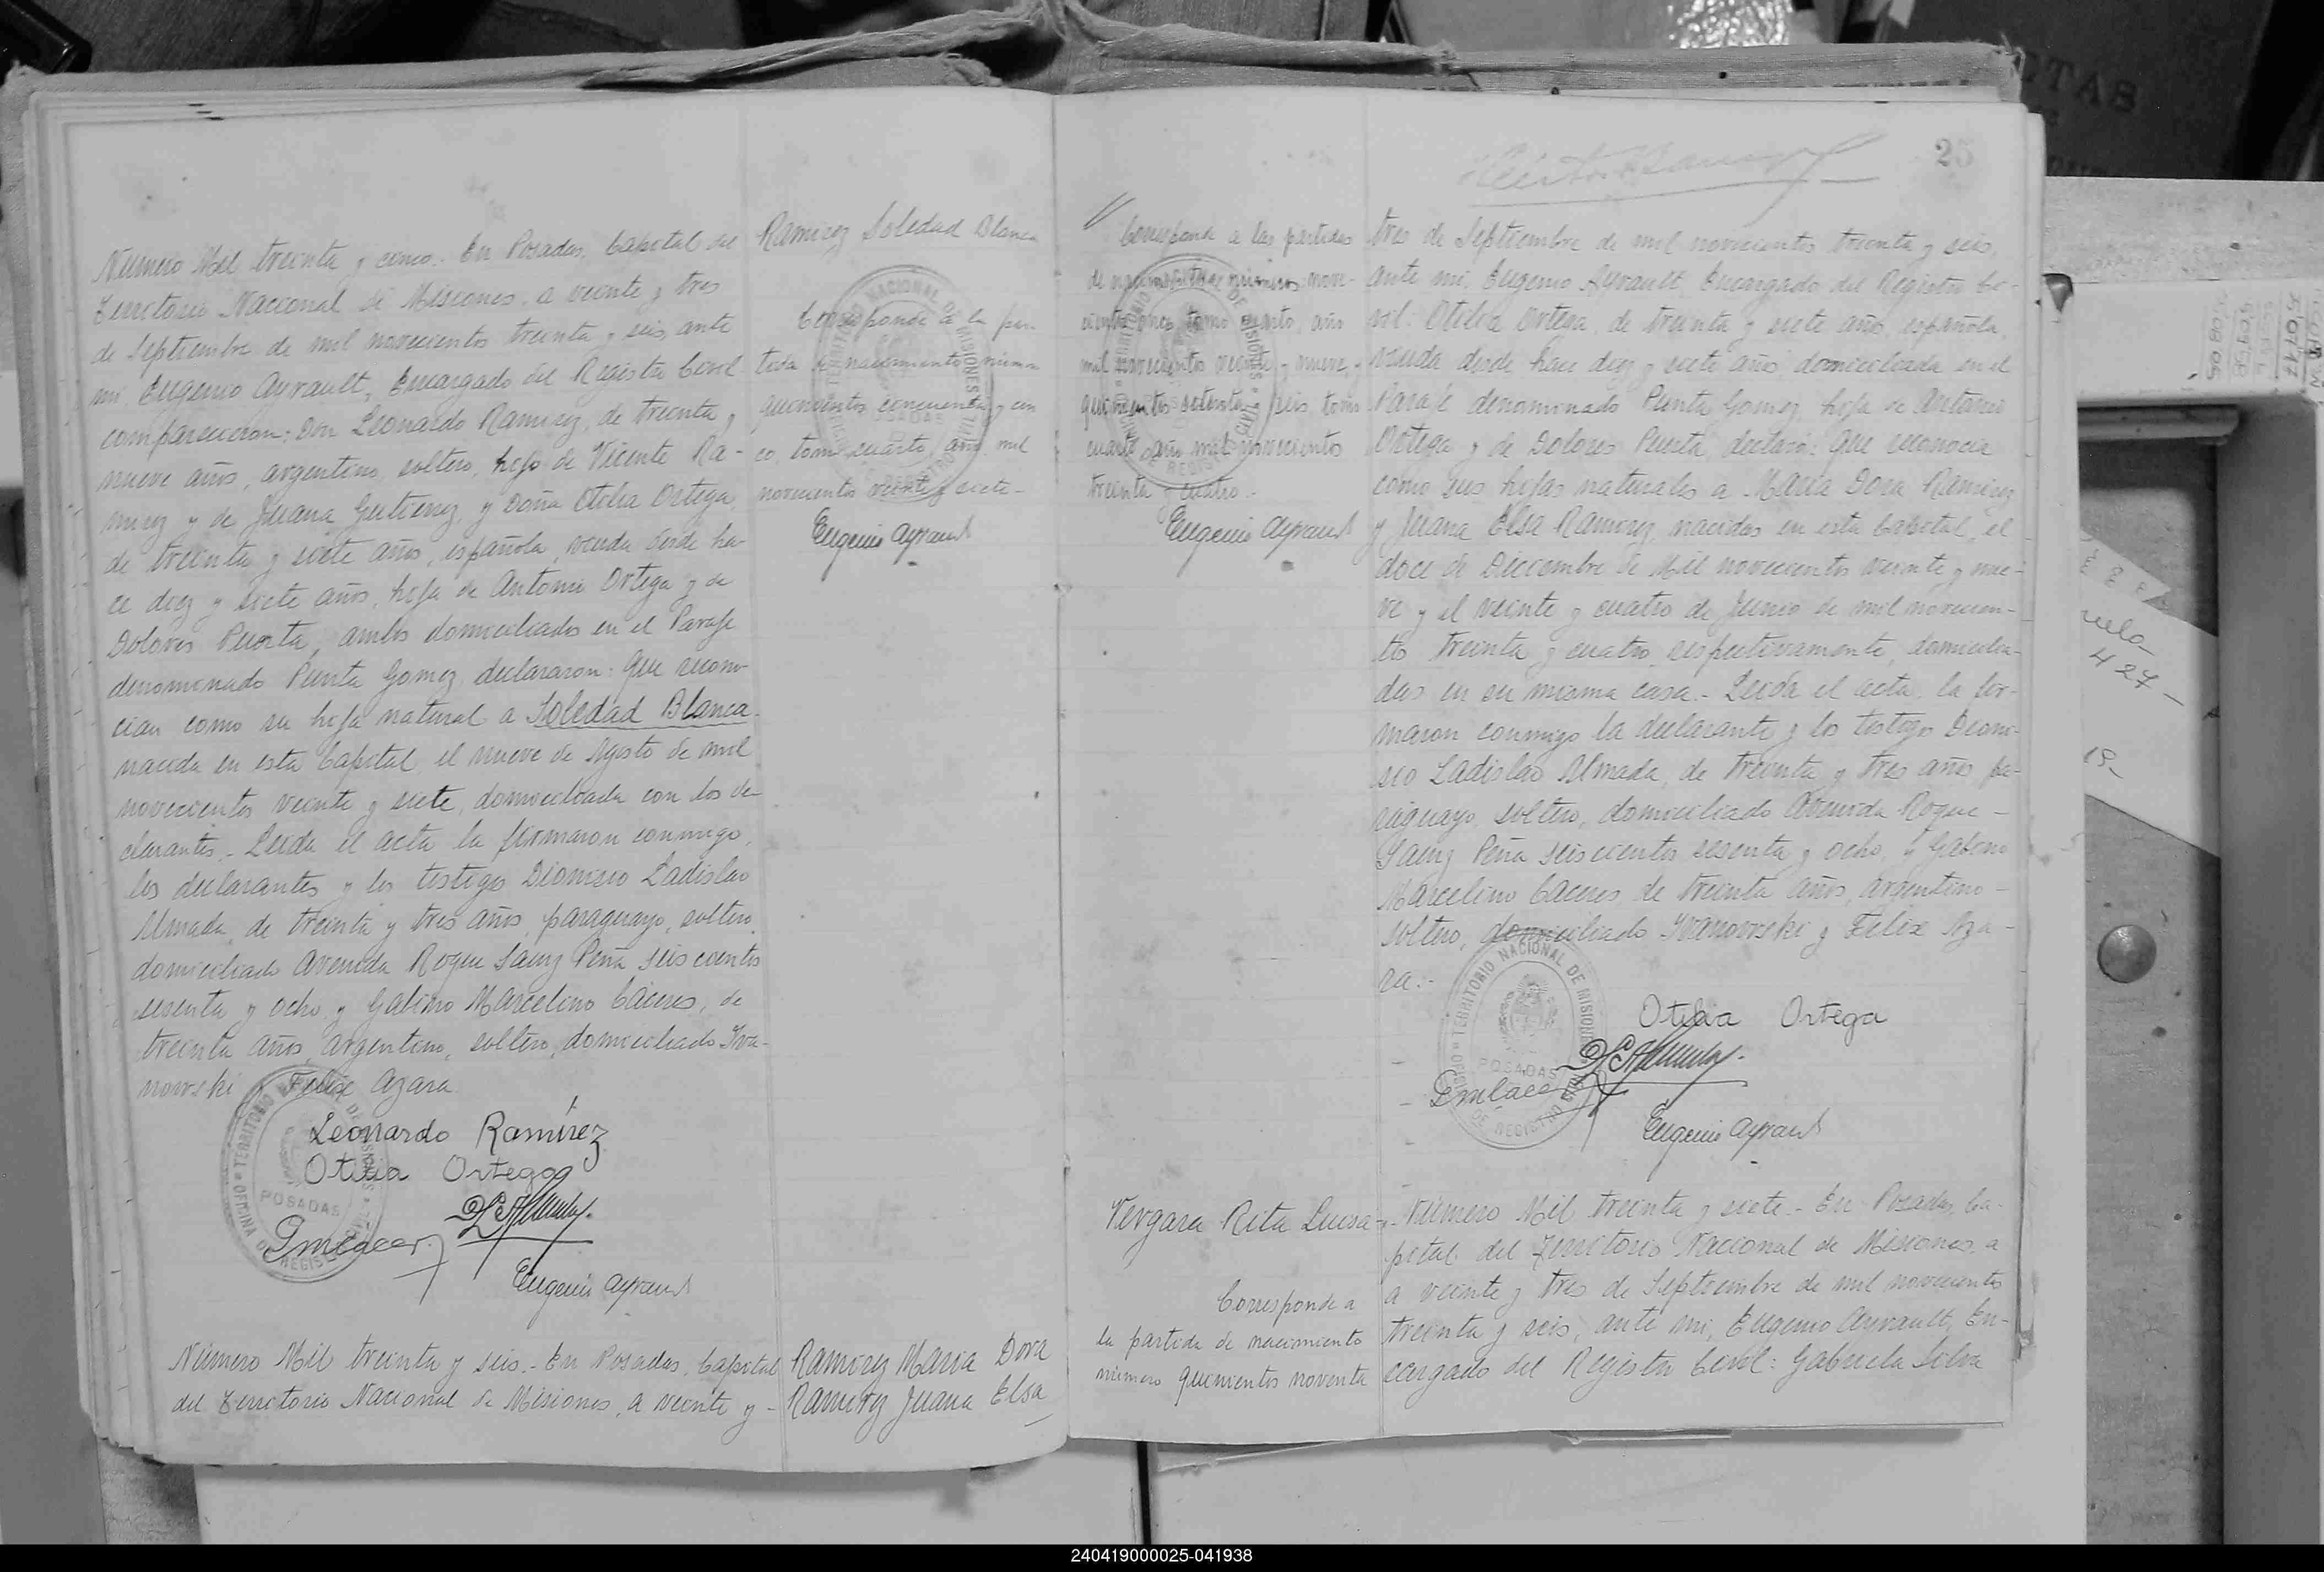 Número Mil treinta y cinco.- En Posadas, Capital del
Territorio Nacional de Misiones, a veinte y tres
de Septiembre de mil novecientos treinta y seis, ante
mi, Eugenio Ayrault, Encargado del Registro Civil
comparecieron: Don Leonardo Ramirez, de treinta y
nueve años, argentino, soltero, hijo de Vicente Ra-
mirez y de Juana Gutierrez, y Doña Otilia Ortega,
de treinta y siete años, española, viuda desde ha-
ce diez y siete años, hija de Antonio Ortega y de
Dolores Puerta, ambos domiciliados en el Paraje
denominado Punta Gomez, declararon: Que recono-
cian como su hija natural a Soledad Blanca.
nacida en esta Capital, el nueve de Agosto de mil
novecientos veinte y siete, domiciliada con los de-
clarantes.- Leida el acta la firmaron conmigo,
los declarantes y los testigos Dionisio Ladislao
Almada, de treinta y tres años, paraguayo, soltero,
domiciliado Avenida Roque Saenz Peña seis cientos
sesenta y ocho, y Gabino Marcelino Cáceres, de
treinta años, argentino, soltero, domiciliado Iva-
nowski y Felix Azara.
Leonardo Ramírez
Otilia Ortega
Eugenio Ayrault
Ramirez Soledad Blanca
Corresponde a la par-
tida de nacimiento número
quinientos cincuenta y cin
co, tomo cuarto, año mil
novecientos veinte y siete-
Eugenio Ayrault
TERRITORIO NACIONAL DE MISIONES
OFICINA DE REGISTRO CIVIL
POSADAS
Número Mil treinta y seis.- En Posadas, Capital
del Territorio Nacional de Misiones, a veinte y -
Ramirez Maria Dora
Ramirez Juana Elsa
25
Corresponde a las partidas
de nacimientos números nove-
cientos once, tomo cuarto, año
mil novecientos veinte y nueve, y
quinientos setenta y seis, tomo
cuarto, año mil novecientos
treinta y cuatro.-
Eugenio Ayrault
tres de Septiembre de mil novecientos treinta y seis,
ante mi, Eugenio Ayrault, Encargado del Registro Ci-
vil: Otilia Ortega, de treinta y siete años, española,
viuda desde hace diez y siete años, domiciliada en el
Paraje denominado Punta Gomez, hija de Antonio
Ortega y de Dolores Puerta, declaró: Que reconocia
como sus hijas naturales a Maria Dora Ramirez
y Juana Elsa Ramirez, nacidas en esta Capital, el
doce de Diciembre de Mil novecientos veinte y nue-
ve y el veinte y cuatro de Junio de mil novecien-
tos treinta y cuatro, respectivamente, domicilia-
das en su misma casa.- Leida el acta, la fir-
maron conmigo la declarante y los testigos Dioni-
sio Ladislao Almada, de treinta y tres años, pa-
raguayo, soltero, domiciliado Avenida Roque -
Saenz Peña seis cientos sesenta y ocho, y Gabino
Marcelino Cáceres, de treinta años, argentino -
soltero, domiciliado Ivanowski y Felix Aza-
ra.-
Otilia Ortega
Eugenio Ayrault
TERRITORIO NACIONAL DE MISIONES
OFICINA DE REGISTRO CIVIL
POSADAS
Vergara Rita Luisa
Corresponde a
la partida de nacimiento
número quinientos noventa
Número Mil treinta y siete.- En Posadas, Ca-
pital del Territorio Nacional de Misiones, a
a veinte y tres de Septiembre de mil novecientos
treinta y seis, ante mi, Eugenio Ayrault, En-
cargado del Registro Civil: Gabriela Silva
240419000025-041938